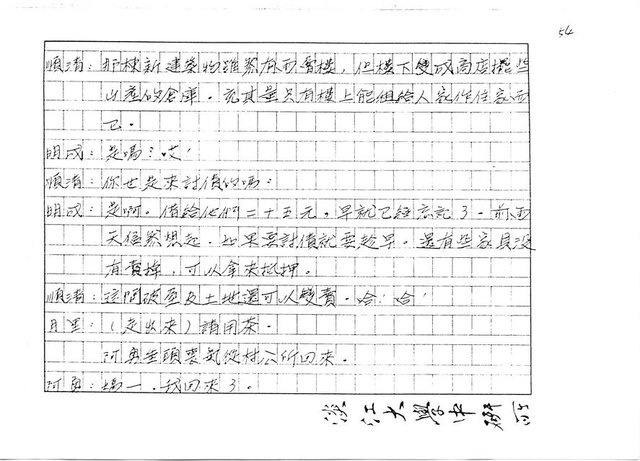 54
順清：那棟新建築物雖然有兩層樓，但樓下變成商店擺些
山產的倉庫。充其量只有樓上能租給人家作住家而
已。
明成：是嗎？哎！
順清：你也是來討債的嗎？
明成：是啊。借給他們二十五元，早就已經忘記了。前兩
天偶然想起。如果要討債就要趁早。還有些家具沒
有賣掉，可以拿來抵押。
順清：這間破厝及土地還可以變賣。哈！哈！
月里：（走出來）請用茶。
阿勇垂頭喪氣從村公所回來。
阿勇：媽－，我回來了。
淡江大學中研所